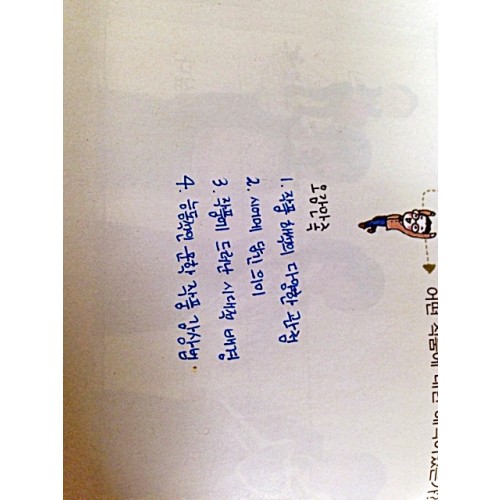 어떤 작품에 대한
오감만족
1. 작품 해석의 다양한 관점
2. 시어에 담긴 의미
3. 작품에 드러난 시대적 배경
4. 능동적인 문학 작품 감상법.